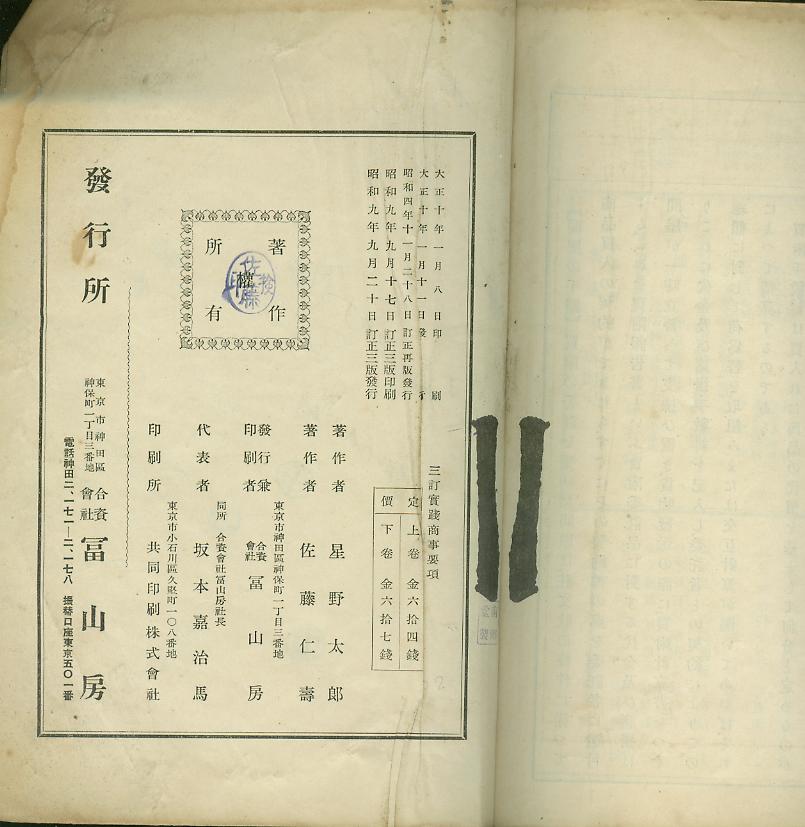 大正十年一月八日印刷
大正十年一月十一日發行
昭和四年十一月二十八日訂正再版發行
昭和九年九月十七日訂正三版印刷
昭和九年九月二十日訂正三版發行
三訂實踐商事要項
定價
上卷 金六拾四錢
下卷 金六拾七錢
著作權所有
佐藤
檢印
著作者 星野太郎
著作者 佐藤仁壽
發行兼印刷者
東京市神田區神保町一丁目三番地
合資會社 冨山房
同所 合資會社冨山房社長
代表者 坂本嘉治馬
東京市小石川區久堅町一〇八番地
印刷所 共同印刷株式會社
發行所
東京市神田區神保町一丁目三番地
合資會社 冨山房
電話神田二、一七一—二、一七八 振替口座東京五〇一番